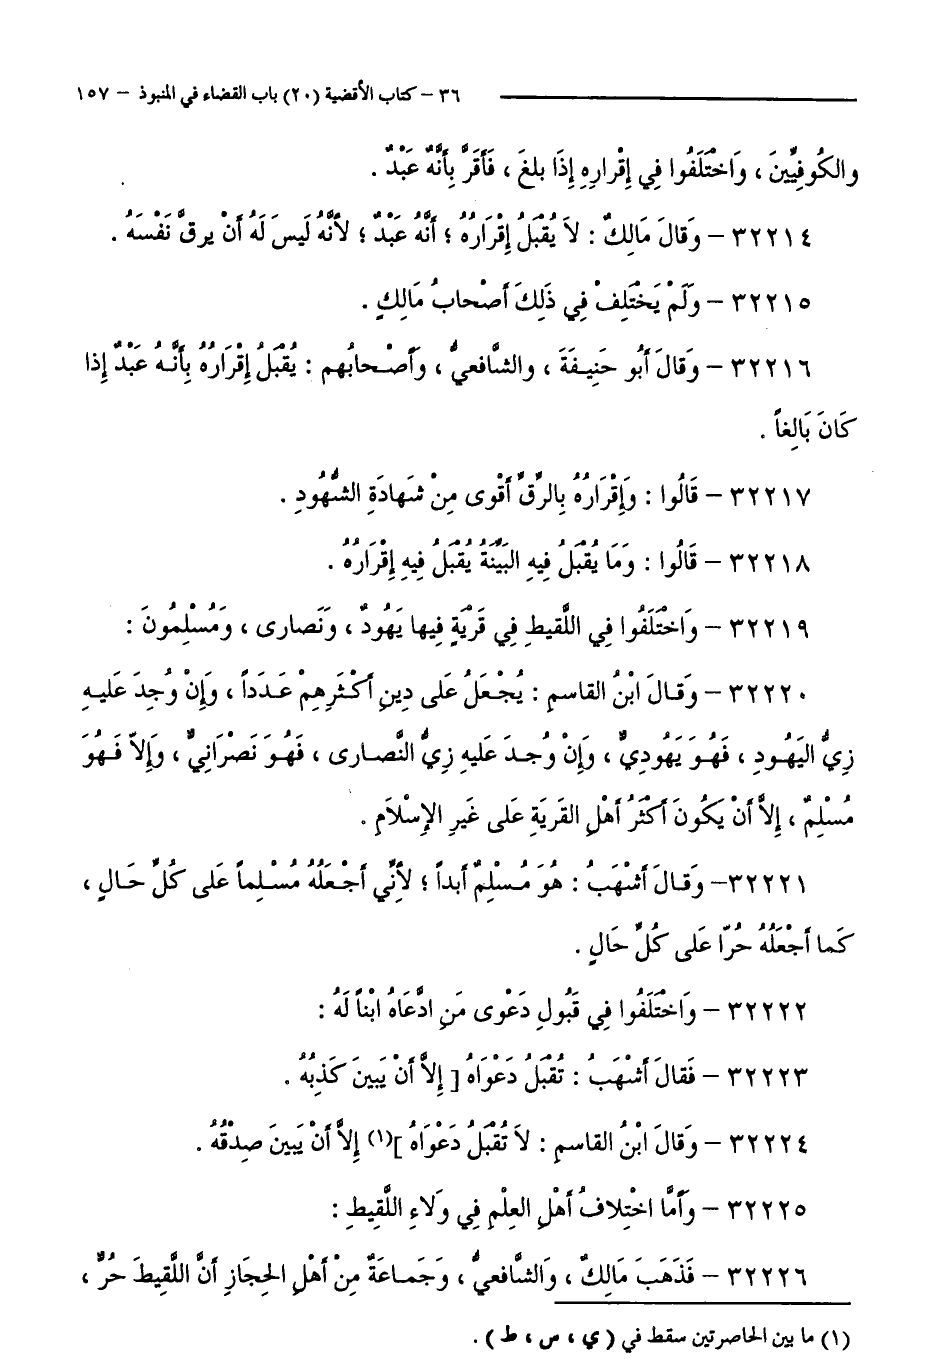 ٣٦ – كتاب الأقضية (٢٠) باب القضاء في المنبوذ – ١٥٧
والكُوفِيِّينَ ، وَاخْتَلَفُوا فِي إِقْرارِهِ إِذَا بلغَ ، فَأَقَرَّ بِأَنَّهُ عَبْدٌ .
٣٢٢١٤ – وَقالَ مَالِكٌ : لاَ يُقْبَلُ إِقْرَارُهُ ؛ أَنَّهُ عَبْدٌ ؛ لأَنَّهُ لَيسَ لَهُ أَنْ يرقَّ نَفْسَهُ .
٣٢٢١٥ – وَلَمْ يَخْتَلِفْ فِي ذَلِكَ أَصْحابُ مَالِكٍ .
٣٢٢١٦ – وَقالَ أَبُو حَنِيفَةَ ، والشَّافعيُّ ، وأَصْحابُهم : يُقْبَلُ إِقْرَارُهُ بِأَنَّهُ عَبْدٌ إِذا
كَانَ بَالِغاً .
٣٢٢١٧ – قَالُوا : وَإِقْرَارُهُ بِالرِّقِّ أَقْوى مِنْ شَهادَةِ الشُّهُودِ .
٣٢٢١٨ – قَالُوا : وَمَا يُقْبَلُ فِيهِ البَيِّنَةُ يُقْبَلُ فِيهِ إِقْرَارُهُ .
٣٢٢١٩ – وَاخْتَلَفُوا فِي اللَّقيطِ فِي قَرْيَةٍ فِيها يَهُودٌ ، وَنَصارى ، وَمُسْلِمُونَ :
٣٢٢٢٠ – وَقالَ ابْنُ القاسمِ : يُجْعَلُ عَلى دِينِ أَكْثَرِهِمْ عَدَداً ، وَإِنْ وُجِدَ عَليهِ
زِيُّ اليَهُودِ ، فَهُوَ يَهُودِيٌّ ، وَإِنْ وُجِدَ عَليهِ زِيُّ النَّصارى ، فَهُوَ نَصْرَانِيٌّ ، وَإِلاَّ فَهُوَ
مُسْلِمٌ ، إِلاَّ أَنْ يَكُونَ أَكْثَرُ أَهْلِ القَرْيَةِ عَلى غَيرِ الإِسْلاَمِ .
٣٢٢٢١– وَقالَ أَشْهَبُ : هُوَ مُسْلِمٌ أَبداً ؛ لأَنِّي أَجْعَلُهُ مُسْلِماً عَلى كُلِّ حَالٍ ،
كَما أَجْعَلُهُ حُرّا عَلى كُلِّ حَالٍ .
٣٢٢٢٢ – وَاخْتَلَفُوا فِي قَبُولِ دَعْوى مَنِ ادَّعَاهُ ابْناً لَهُ :
٣٢٢٢٣ – فَقالَ أَشْهَبُ : تُقْبَلُ دَعْوَاهُ [ إِلاَّ أَنْ يَبينَ كَذِبُهُ .
٣٢٢٢٤ – وَقالَ ابْنُ القاسمِ : لاَ تُقْبَلُ دَعْوَاهُ ](١) إِلاَّ أَنْ يَبينَ صِدْقُهُ .
٣٢٢٢٥ – وَأَمَّا اخْتِلافُ أَهْلِ العِلْمِ فِي وَلاءِ اللَّقيطِ :
٣٢٢٢٦ – فَذَهَبَ مَالِكٌ ، وَالشَّافعيُّ ، وَجَماعَةٌ مِنْ أَهْلِ الحِجَازِ أَنَّ اللَّقيطَ حُرٌّ ،
(١) ما بين الحاصرتين سقط في ( ي ، س ، ط ) .